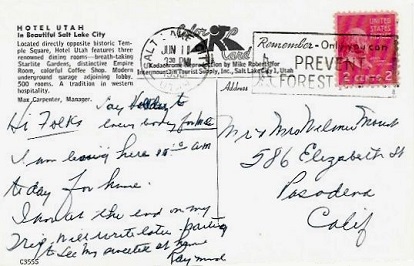 HOTEL UTAH
In Beautiful Salt Lake City
Located directly opposite historic Temple Square, Hotel Utah features three
renowned dining rooms—breath-taking
Starlite Gardens, distinctive Empire
Room, colorful Coffee Shop. Modern
underground garage adjoining lobby.
500 rooms. A tradition in western
hospitality.
Max Carpenter, Manager.
Card
Kodachrome by Mike Roberts for
Intermountain Tourist Supply, Inc., Salt Lake City 1, Utah
SALT LAKE
JUN 11
PM
Remember - Only you can
PREVENT
FOREST
UNITED STATES
2 CENTS 2
Address
Say to
every body for me
Hi Folks
I am leaving here am
to day for home.
I am at the end on my
Trip will write later
to see my at home
Raymond
Mr & Mrs Wilmer
586 Elizabeth St
Pasadena
Calif
C3555